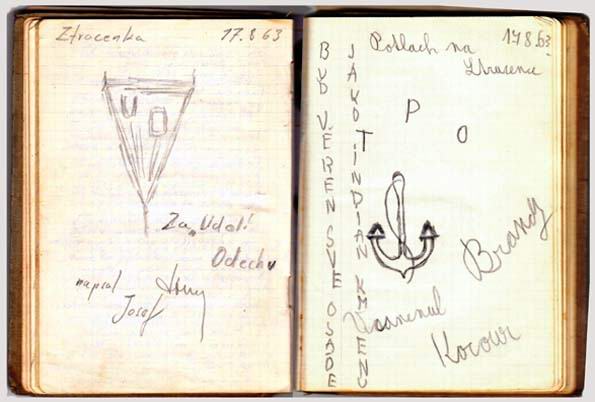 Ztracenka 17.8 63
U O
Za „Údolí
Odechu
napsal
Josef
17.8.63
Potlach na
BUĎ VĚREN SVÉ OSADĚ
JAKO INDIÁN KMENU
T P O
Brandy
Kocour